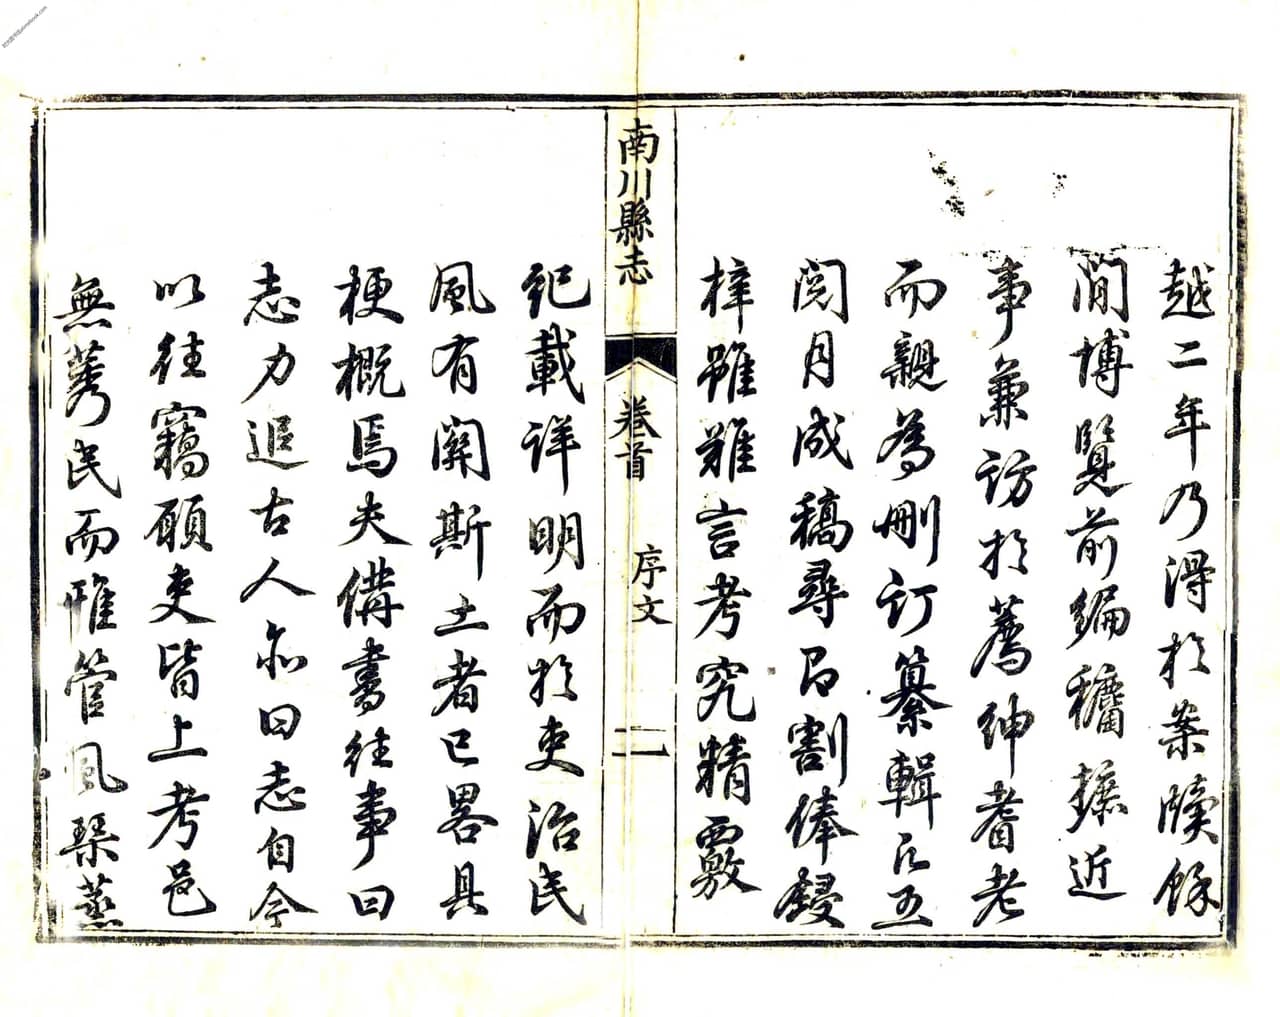 越二年乃得於案牘餘
閒博覽前編穮摭近
事兼訪於薦紳耆老
而親為刪訂纂輯凡五
閱月成稿尋即割俸鋟
梓雖難言考究精覈
南川縣志
卷首
序文
二
紀載詳明而於吏治民
風有關斯土者已畧具
梗概焉夫備書往事曰
志力追古人亦曰志自今
以往竊願吏皆上考邑
無莠民而惟管風琴蒸